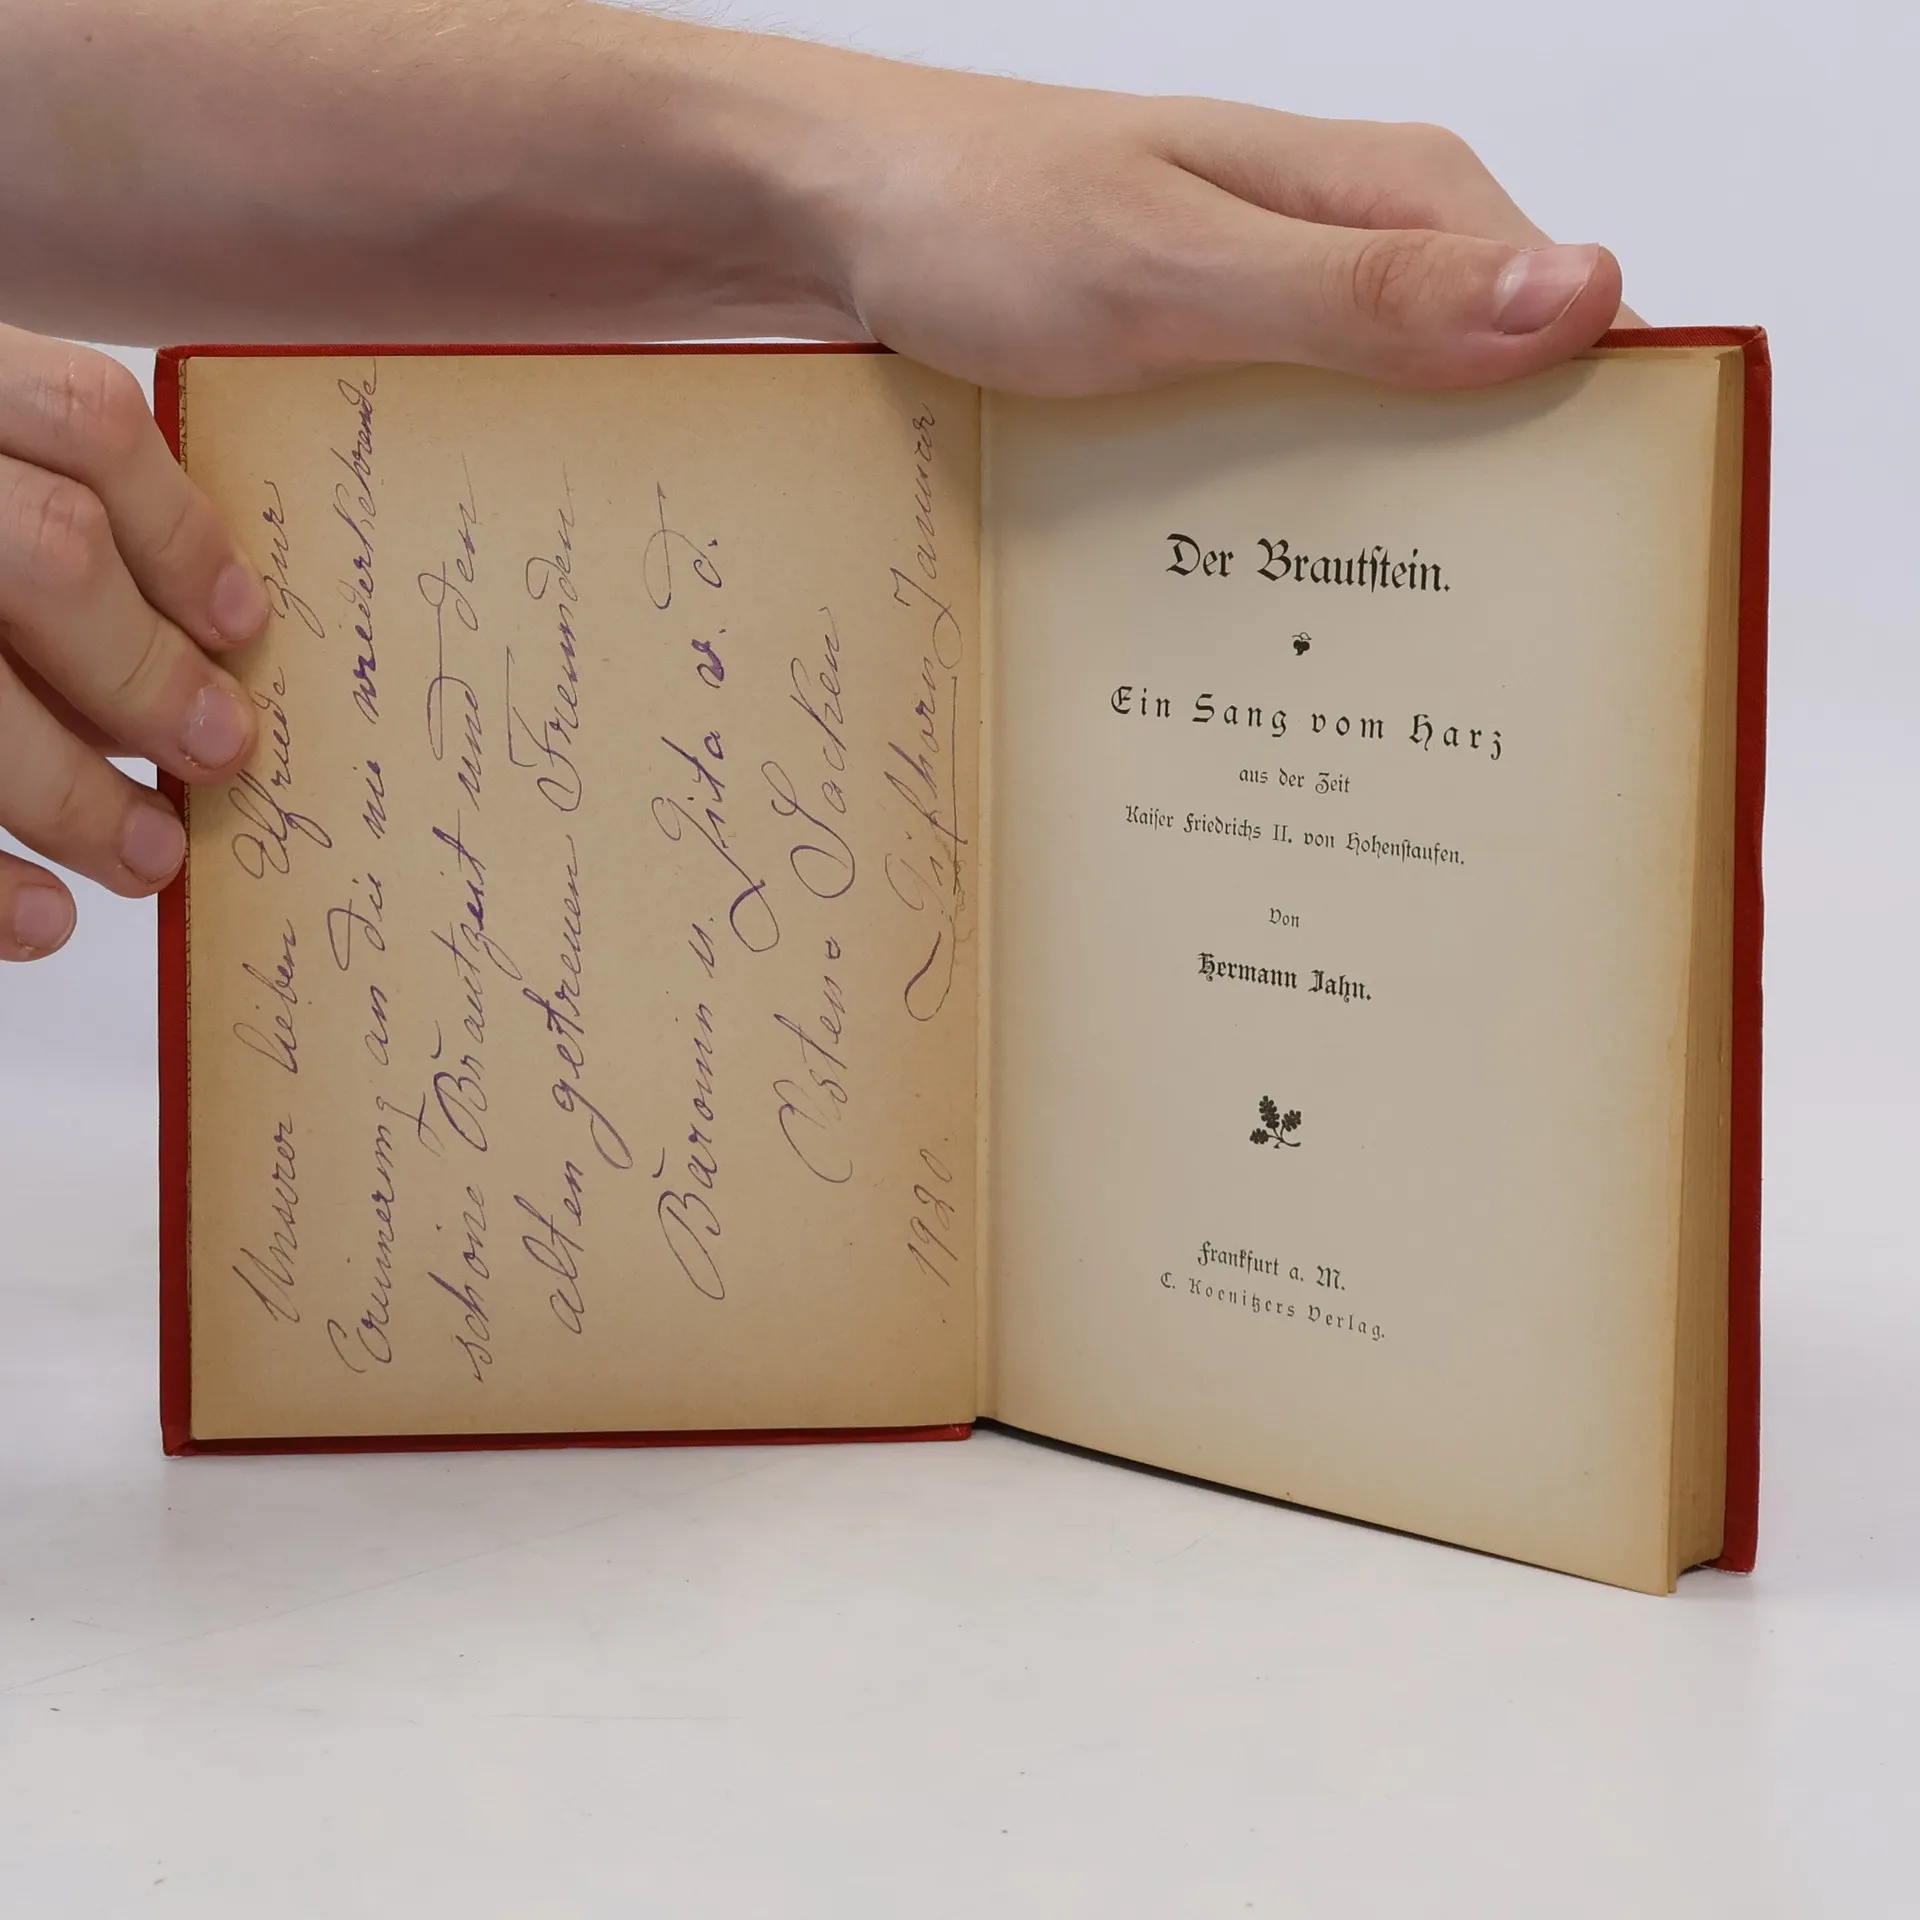 Unserer lieben Elfriede zur
Erinnerung an die nie wiederkehrende
schöne Brautzeit und den
alten getreuen Freunden
Baronin u. Zita v. d.
Osten-Sacken
Gifhorn Januar
1920.
Der Brautstein.
Ein Sang vom Harz
aus der Zeit
Kaiser Friedrichs II. von Hohenstaufen.
Von
Hermann Jahn.
Frankfurt a. M.
C. Koenitzers Verlag.